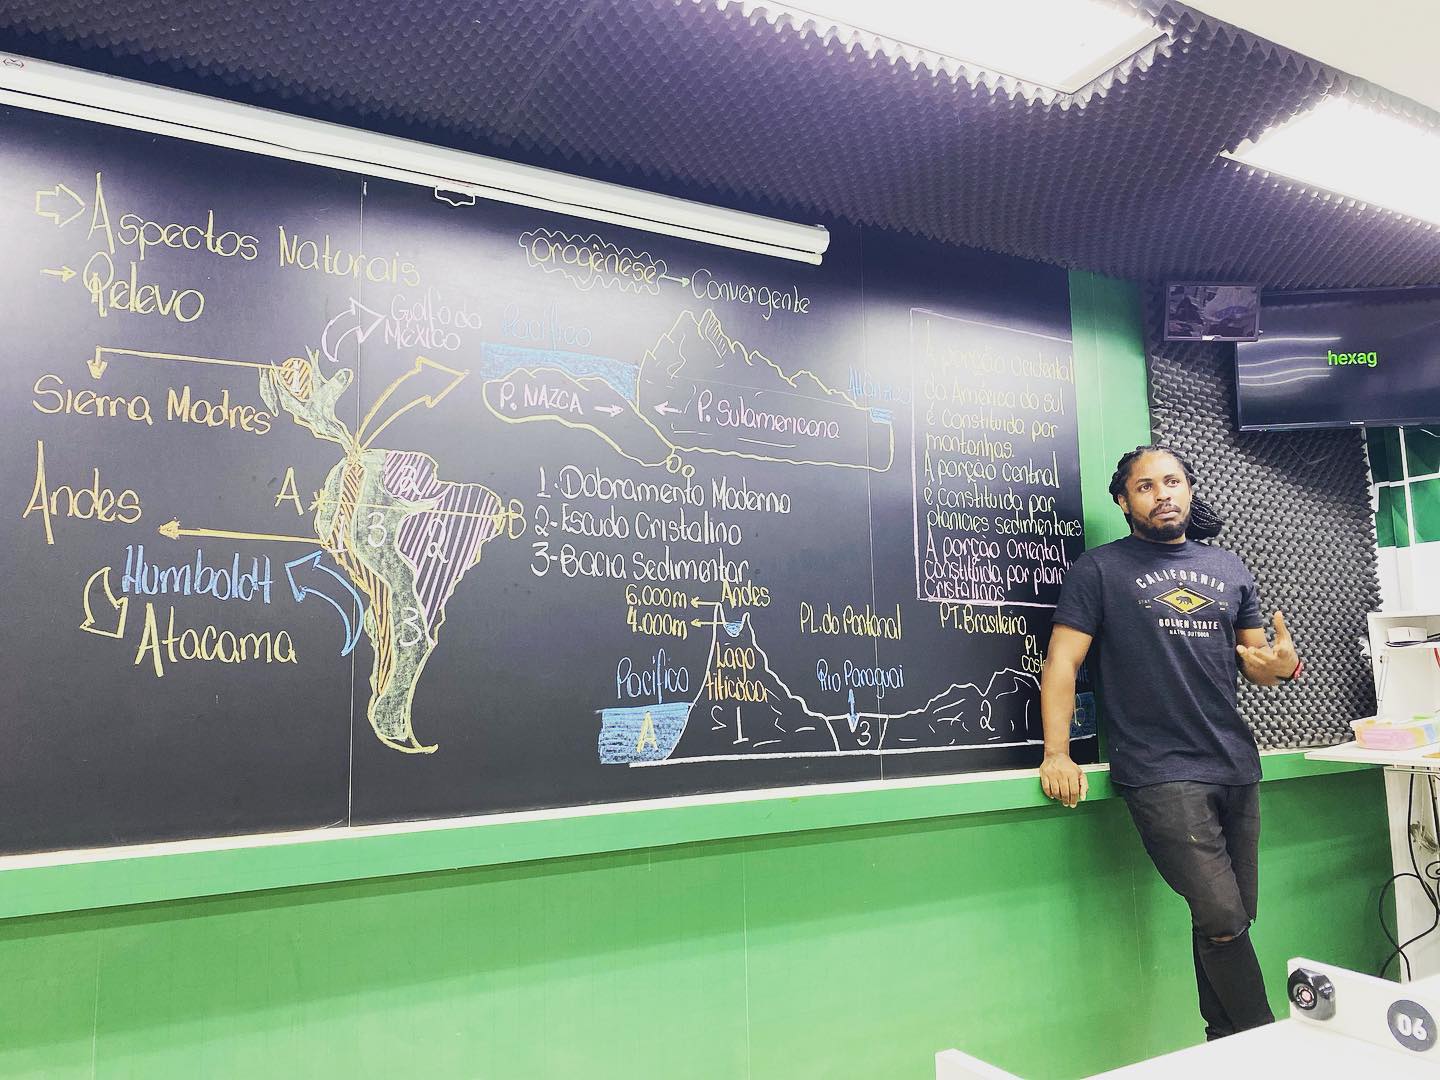 Aspectos Naturais
Relevo
Orogênese
Convergente
Golfo do
México
Pacífico
Sierra Madres
1
P. NAZCA
P. Sulamericana
Andes
A
B
1
2
3
2
3
1. Dobramento Moderno
2- Escudo Cristalino
3- Bacia Sedimentar
Humboldt
Atacama
6.000m
4.000m
Andes
Lago
Pl. do Pantanal
PT. Brasileiro
Pl.
Pacífico
Rio Paraguai
A
1
3
2
A porção ocidental
da América do sul
é constituida por
montanhas.
A porção central
é constituida por
planícies sedimentares
A porção oriental
constituida por
Cristalinos
hexag
CALIFORNIA
GOLDEN STATE
06